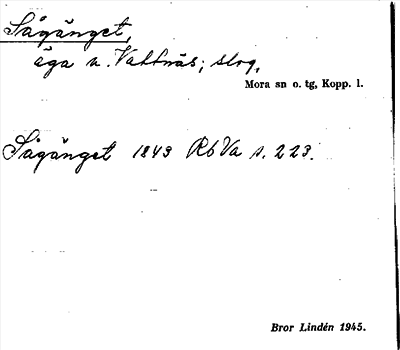 Sågänget,
äga n. Vattnäs; skog,
Mora sn o. tg, Kopp. l.
Sågänget 1843 RbVa s. 223.
Bror Lindén 1945.